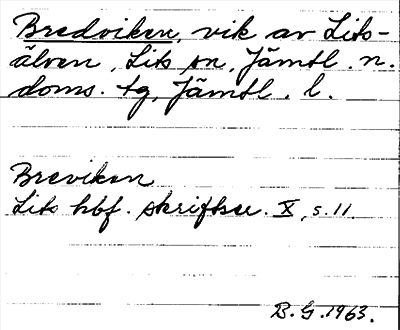 Bredviken, vik av Lits-
älven, Lits sn, Jämtl. n.
doms. tg, Jämtl. l.
Breviken
Lits hbf. skriftser. X, s. 11.
B. G. 1963.